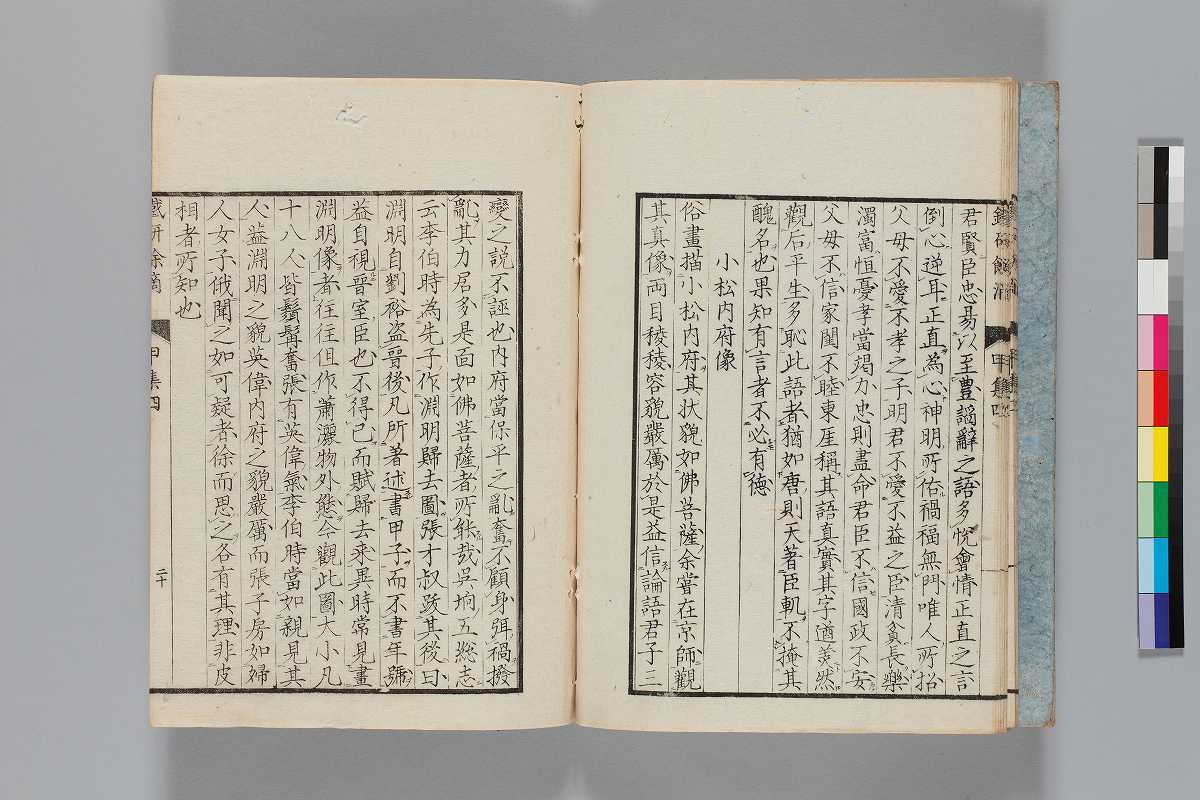 君賢臣忠易以至豊謟辭之語多悅會情正直之言
倒心逆耳正直為心神明所佑禍福無門唯人所招
父母不愛不孝之子明君不愛不益之臣清貧長樂
濁富恒憂孝當竭力忠則盡命君臣不信國政不安
父母不信家閨不睦東厓稱其語真實其字遒美然
觀后平生多恥此語者猶如唐則天著臣軌不掩其
醜名也果知有言者不必有徳
小松内府像
俗畫描小松内府其状貌如佛菩薩余嘗在京師觀
其真像両目稜稜容貌嚴厲於是益信論語君子三
變之説不誣也内府當保平之亂奮不顧身弭禍撥
亂其力居多是面如佛菩薩者所能哉吳坰五総志
云李伯時為先子作淵明歸去圖張才叔跋其後曰
淵明自劉裕盗晉後凡所著述書甲子而不書年號
益自視晉室臣也不得已而賦歸去来異時常見畫
淵明像者往往但作蕭灑物外態今觀此圖大小凡
十八人皆鬚髯奮張有英偉氣李伯時當如親見其
人益淵明之貌英偉内府之貌嚴厲而張子房如婦
人女子俄聞之如可疑者徐而思之各有其理非皮
相者所知也
甲集四
二十